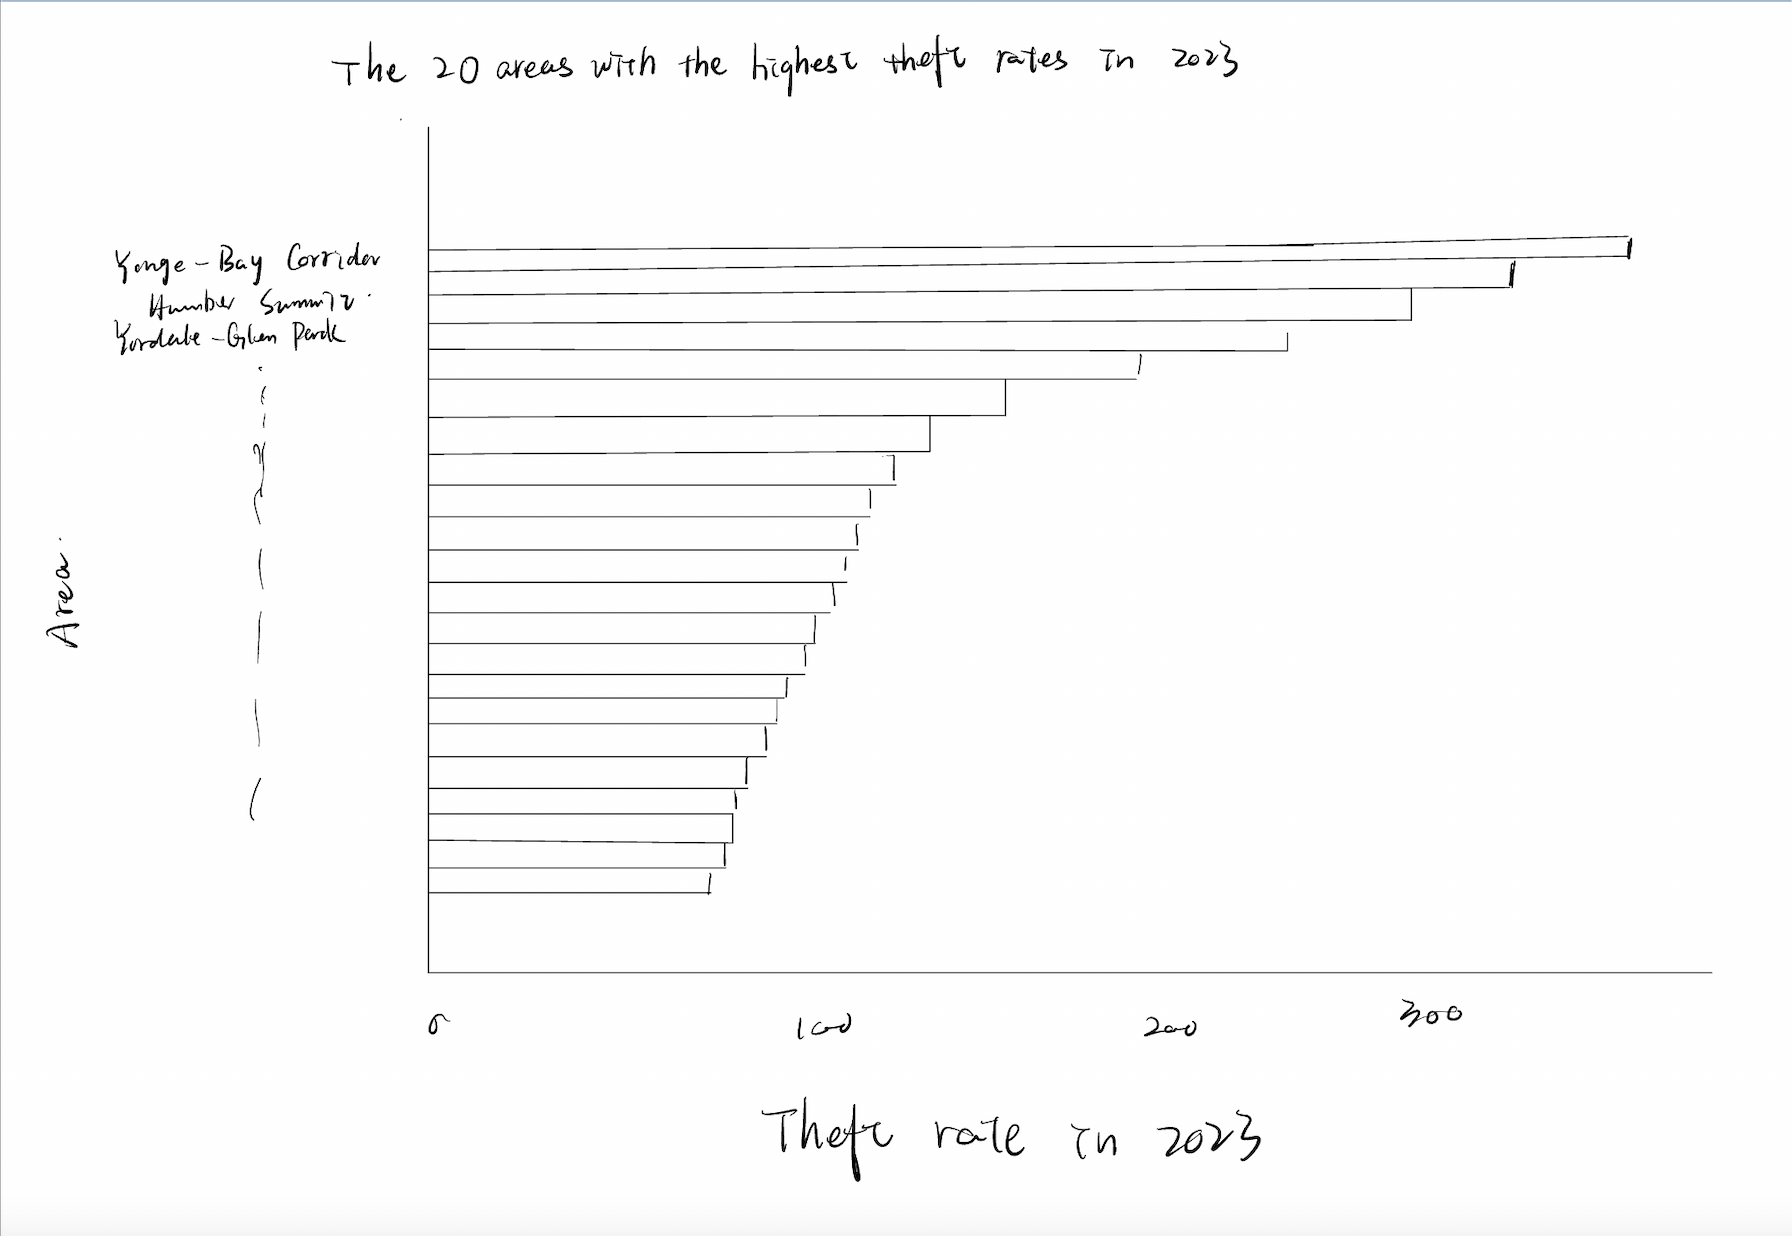 The 20 areas with the highest theft rates in 2023
Yonge-Bay Corridor
Humber Summit
Yordale-Glen Park
Area
0 100 200 300
Theft rate in 2023